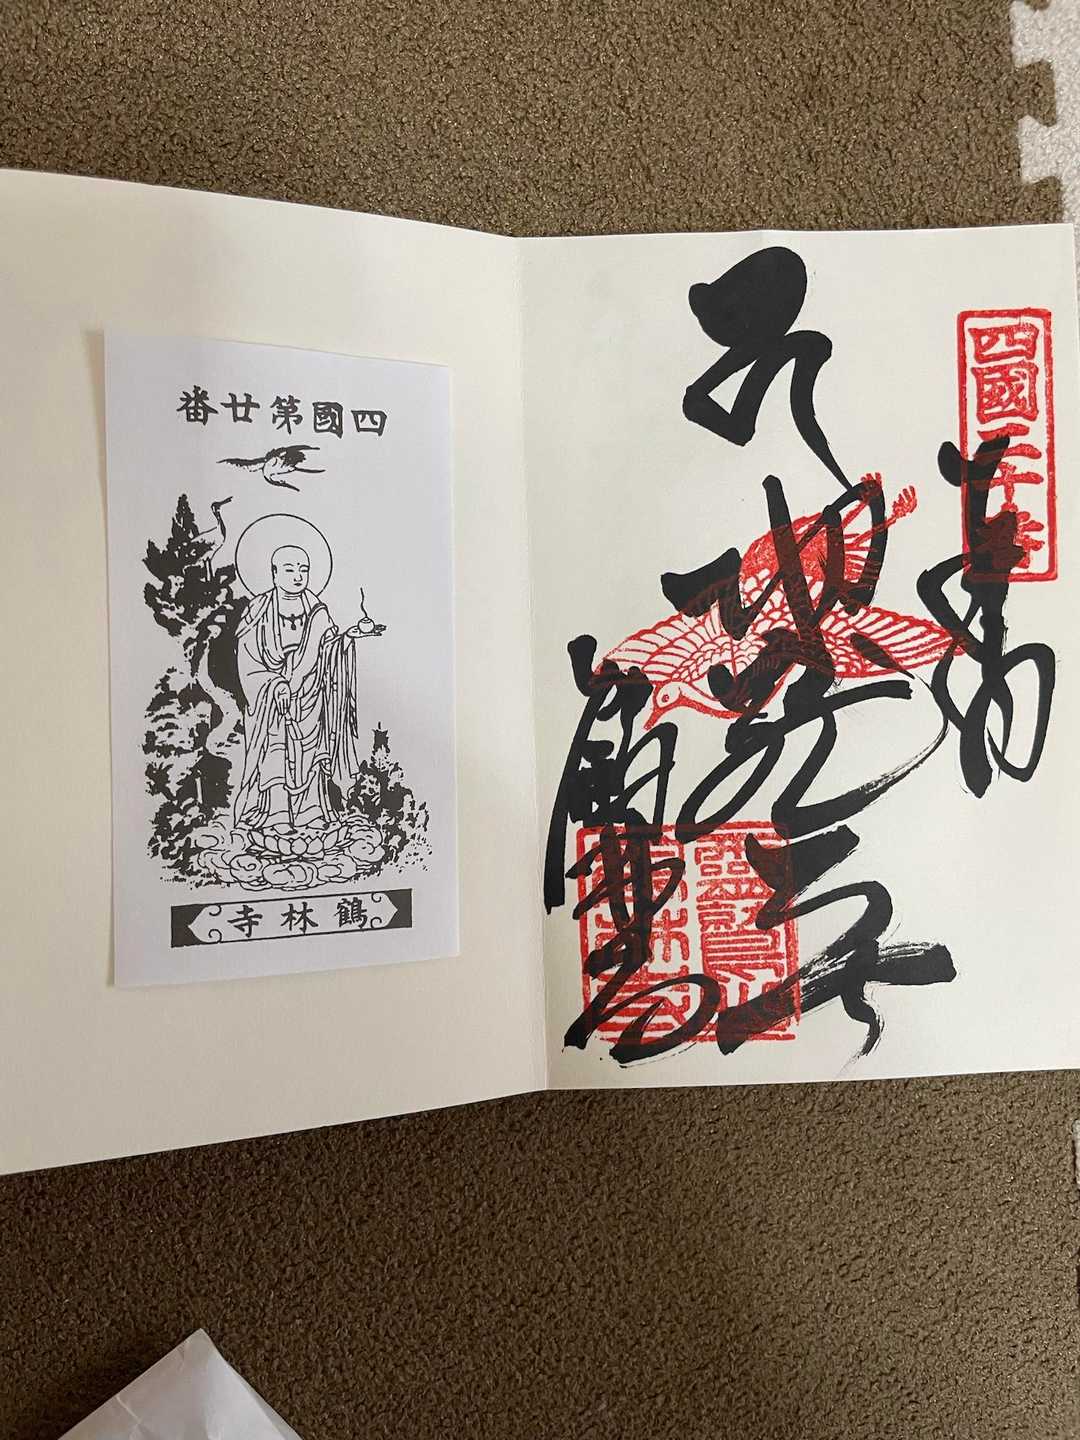 四國第廿番
鶴林寺
四國二十番
奉納
靈鷲山
鶴林寺
鶴林寺